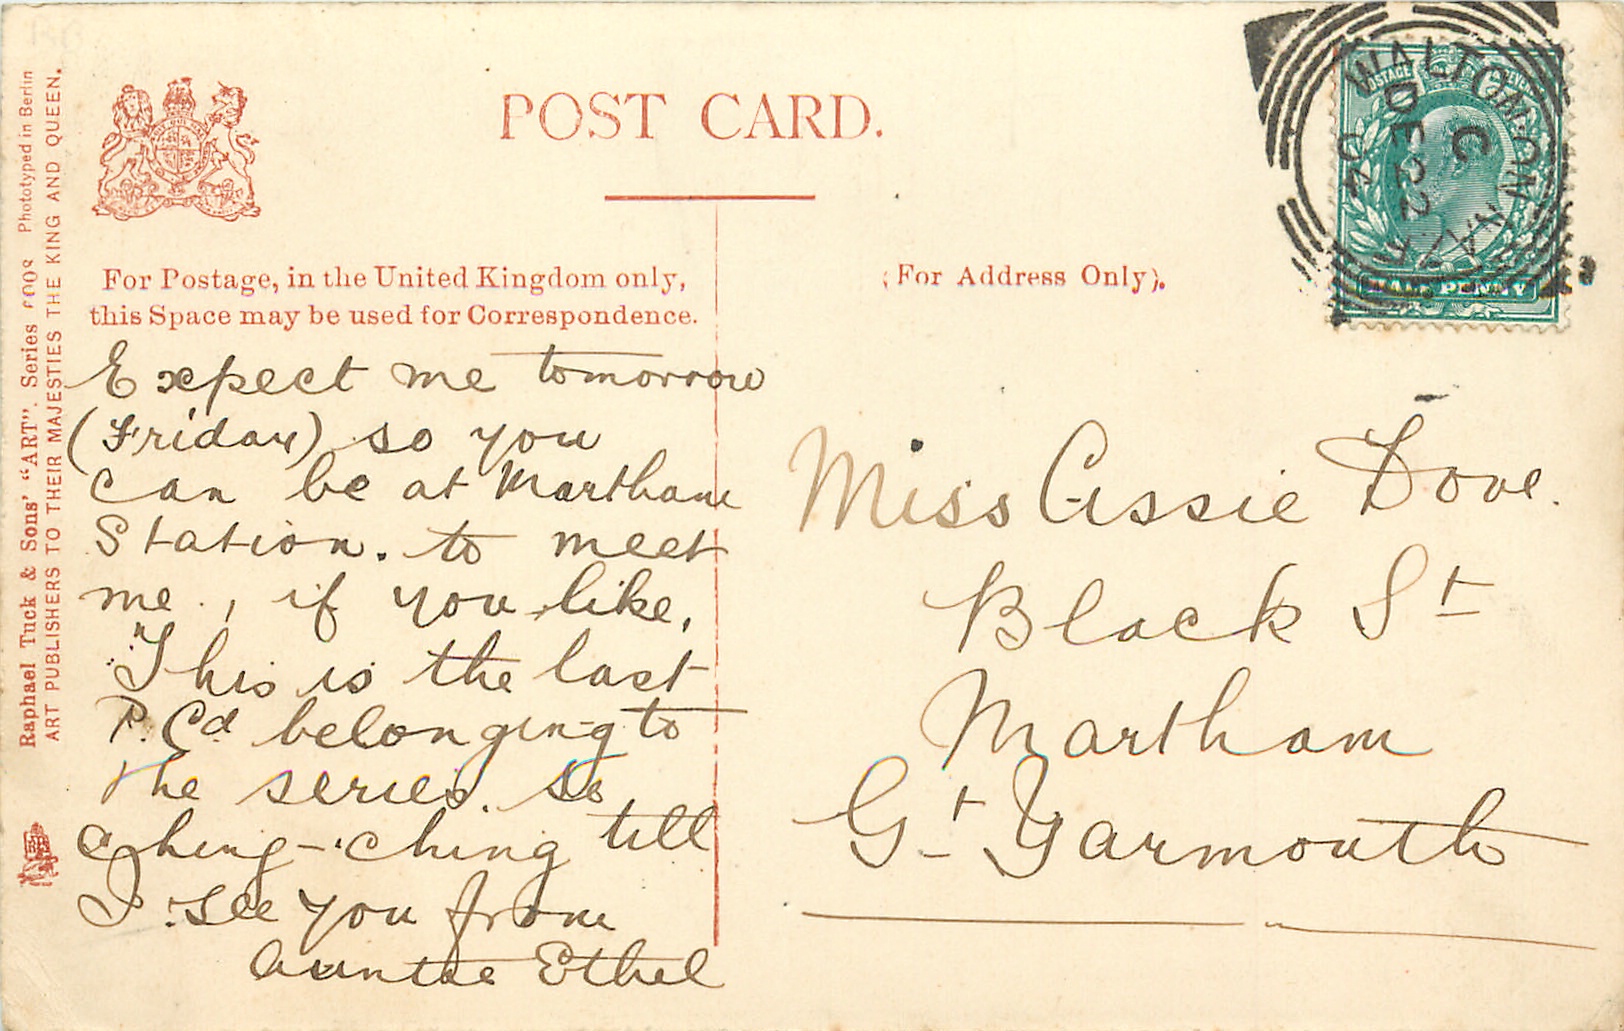 POST CARD.
For Postage, in the United Kingdom only,
this Space may be used for Correspondence.
(For Address Only).
Expect me tomorrow
(Friday) so you
can be at Martham
Station. to meet
me., if you like,
This is the last
P. Cd belonging to
the series. so
ching-ching till
I see you from
Auntie Ethel
Miss Cissie Dove.
Black St
Martham
Gt Yarmouth
WALTON-ON-NAZE
C
DE 22
04
POSTAGE
HALF PENNY
Raphael Tuck & Sons' "ART". Series 6008 Phototyped in Berlin
ART PUBLISHERS TO THEIR MAJESTIES THE KING AND QUEEN.